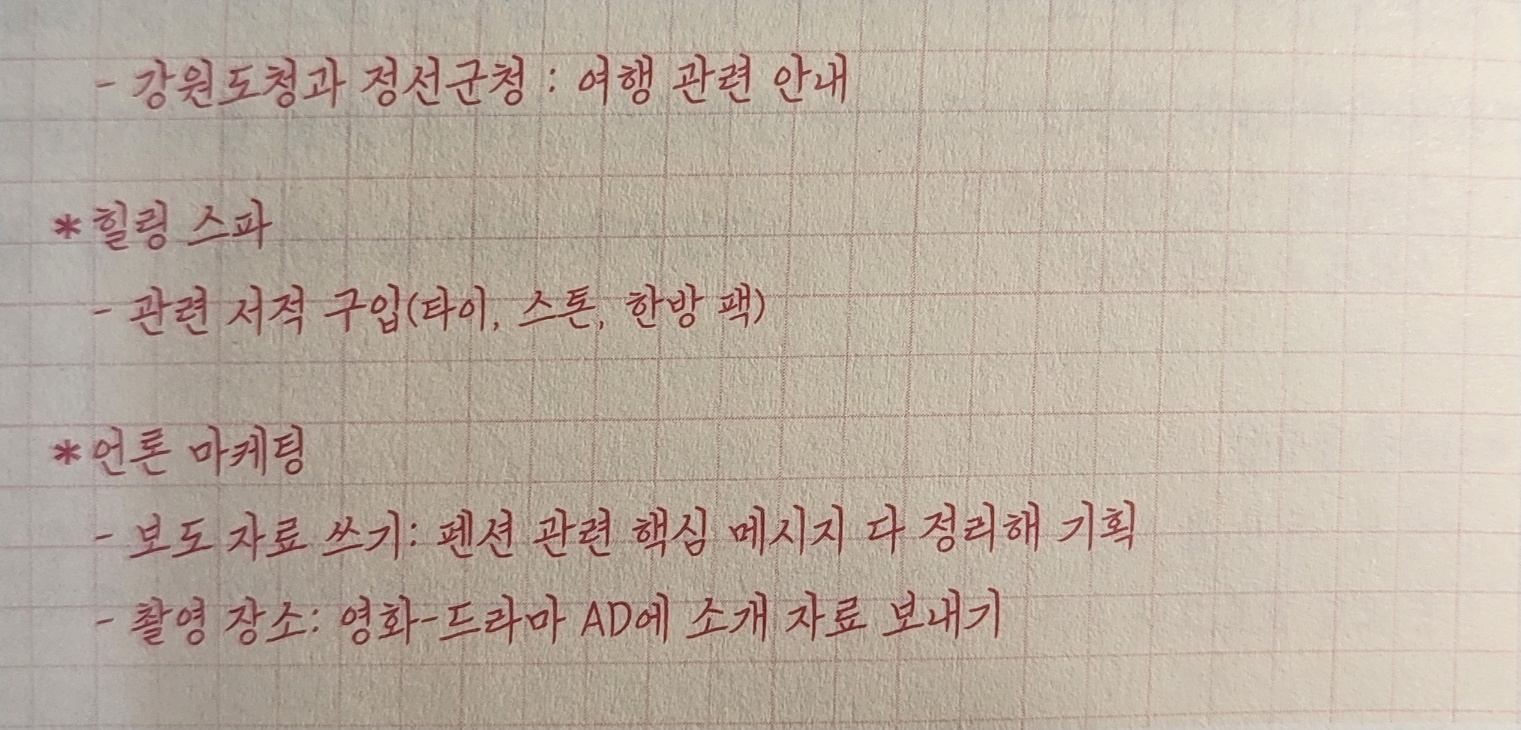 - 강원도청과 정선군청 : 여행 관련 안내
* 힐링 스파
- 관련 서적 구입(타이, 스톤, 한방 팩)
* 언론 마케팅
- 보도 자료 쓰기: 펜션 관련 핵심 메시지 다 정리해 기획
- 촬영 장소: 영화-드라마 AD에 소개 자료 보내기